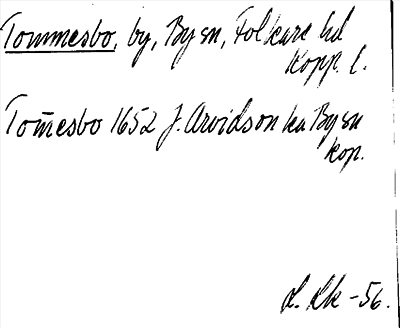 Tommesbo, by, By sn, Folkare hd
Kopp. l.
Tom̄esbo 1652 J. Arvidson ka By sn
kop.